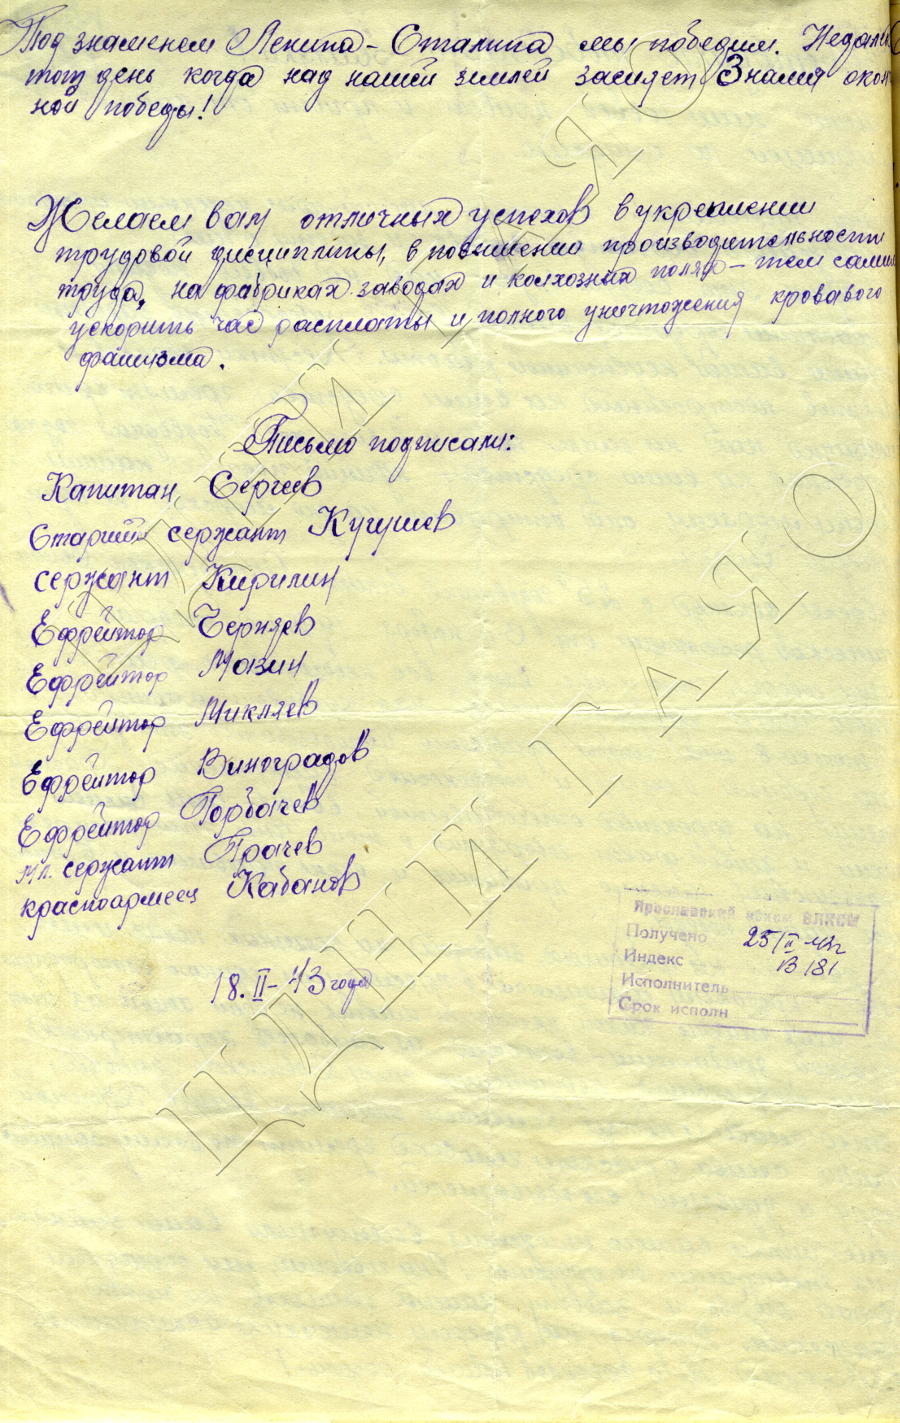 Под знаменем Ленина-Сталина мы победим. Недалёк
тот день когда над нашей землей засияет Знамя окон
ной победы!
Желаем вам отличных успехов в укреплении
трудовой дисциплины, в повышении производительности
труда, на фабриках заводах и колхозных полях - тем самым
ускорить час расплаты и полного уничтожения кровавого
фашизма.
Письмо подписали:
Капитан Сергеев
Старший сержант Кугушев
сержант Кирилин
Ефрейтор Черняев
Ефрейтор Мазин
Ефрейтор Микляев
Ефрейтор Виноградов
Ефрейтор Горбачев
мл. сержант Грачев
красноармеец Кабанов
18.II-43 года
Ярославский обком ВЛКСМ
Получено 25/II 43г
Индекс В 181
Исполнитель
Срок исполн
ЦДНИ ГАЯО
ЦДНИ ГАЯО